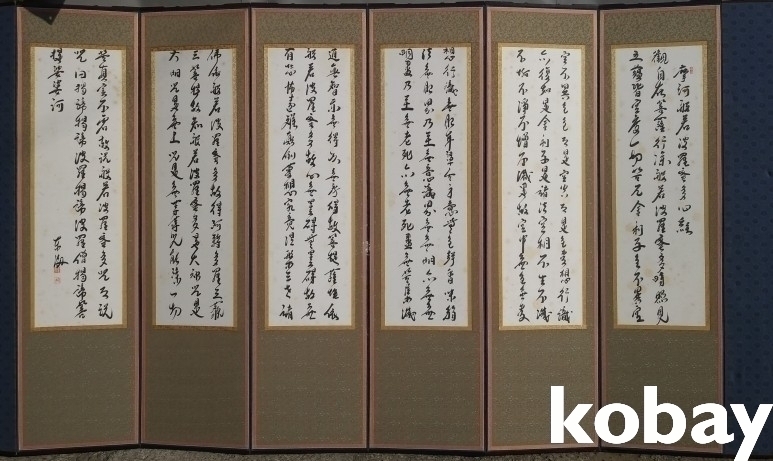 摩訶般若波羅蜜多心經
觀自在菩薩行深般若波羅蜜多時照見
五蘊皆空度一切苦厄舍利子色不異空
空不異色色卽是空空卽是色受想行識
亦復如是舍利子是諸法空相不生不滅
不垢不淨不增不減是故空中無色無受
想行識無眼耳鼻舌身意無色聲香味觸
法無眼界乃至無意識界無無明亦無無
明盡乃至無老死亦無老死盡無苦集滅
道無智亦無得以無所得故菩提薩埵依
般若波羅蜜多故心無罣礙無罣礙故無
有恐怖遠離顚倒夢想究竟涅槃三世諸
佛依般若波羅蜜多故得阿耨多羅三藐
三菩提故知般若波羅蜜多是大神呪是
大明呪是無上呪是無等等呪能除一切
苦眞實不虛故說般若波羅蜜多呪卽說
呪曰揭諦揭諦波羅揭諦波羅僧揭諦菩
提娑婆訶
kobay